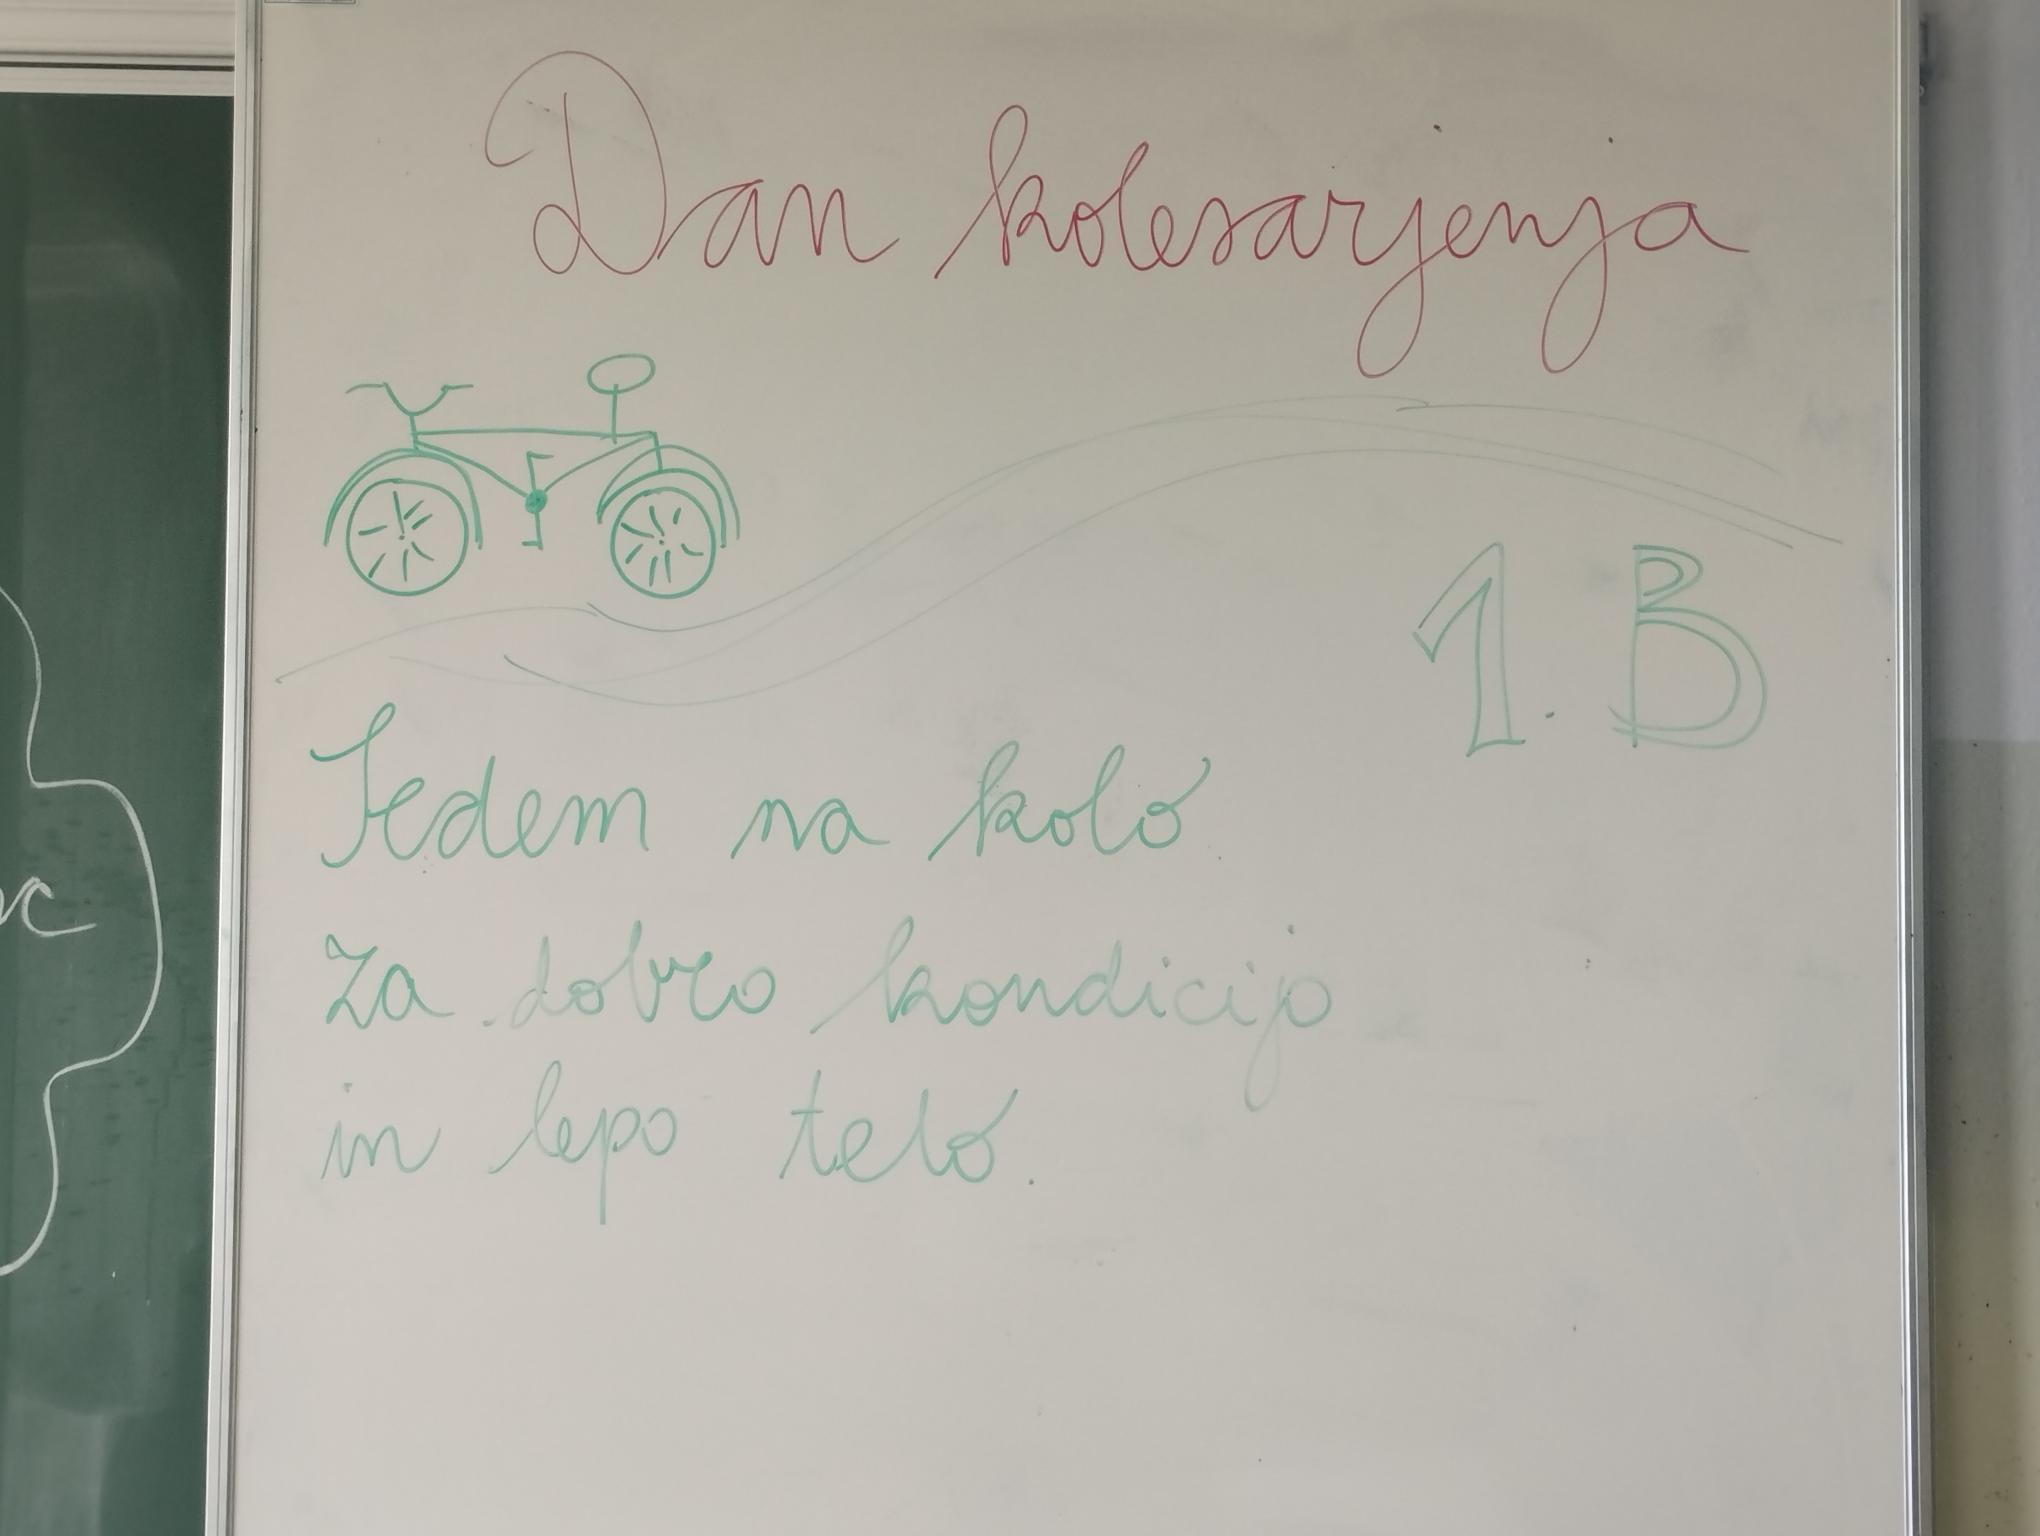 Dan kolesarjenja
1. B
Jedem na koló
za dobro kondicijo
in lepo teló.